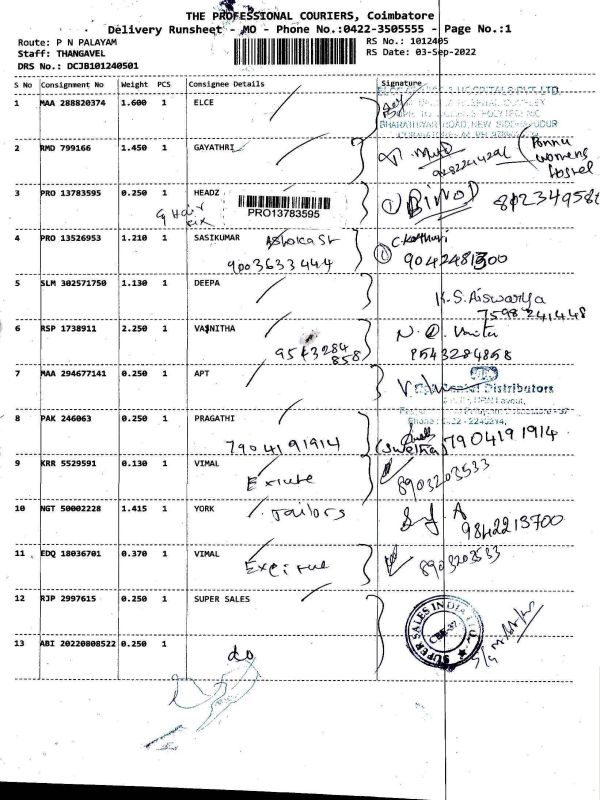 THE PROFESSIONAL COURIERS, Coimbatore
Delivery Runsheet - MO - Phone No.:0422-3505555 - Page No.:1
Route: P N PALAYAM
RS No.: 1012405
Staff: THANGAVEL
RS Date: 03-Sep-2022
DRS No.: DCJB101240501
S No Consignment No Weight PCS Consignee Details Signature
1 MAA 288820374 1.600 1 ELCE
BHARATHIYAR ROAD, NEW SIDDHAPUDUR
2 RMD 799166 1.450 1 GAYATHRI
Ponnu
womens
hostel
3 PRO 13783595 0.250 1 HEADZ
PRO13783595
1 BINOD
4 PRO 13526953 1.210 1 SASIKUMAR Ashoka St
9003633444
5 SLM 302571750 1.130 1 DEEPA
K.S. Aiswarya
7598241448
6 RSP 1738911 2.250 1 VASNITHA
9543284
858
7 MAA 294677141 0.250 1 APT
Distributors
8 PAK 246063 0.250 1 PRAGATHI
7904191914
(Swetha) 7904191914
9 KRR 5529591 0.130 1 VIMAL
8903203533
10 NGT 50002228 1.415 1 YORK Tailors
9842213700
11 EDQ 18036701 0.370 1 VIMAL
8903203533
12 RJP 2997615 0.250 1 SUPER SALES
SUPER SALES INDIA LTD
CBE-37
13 ABI 20220808522 0.250 1
do